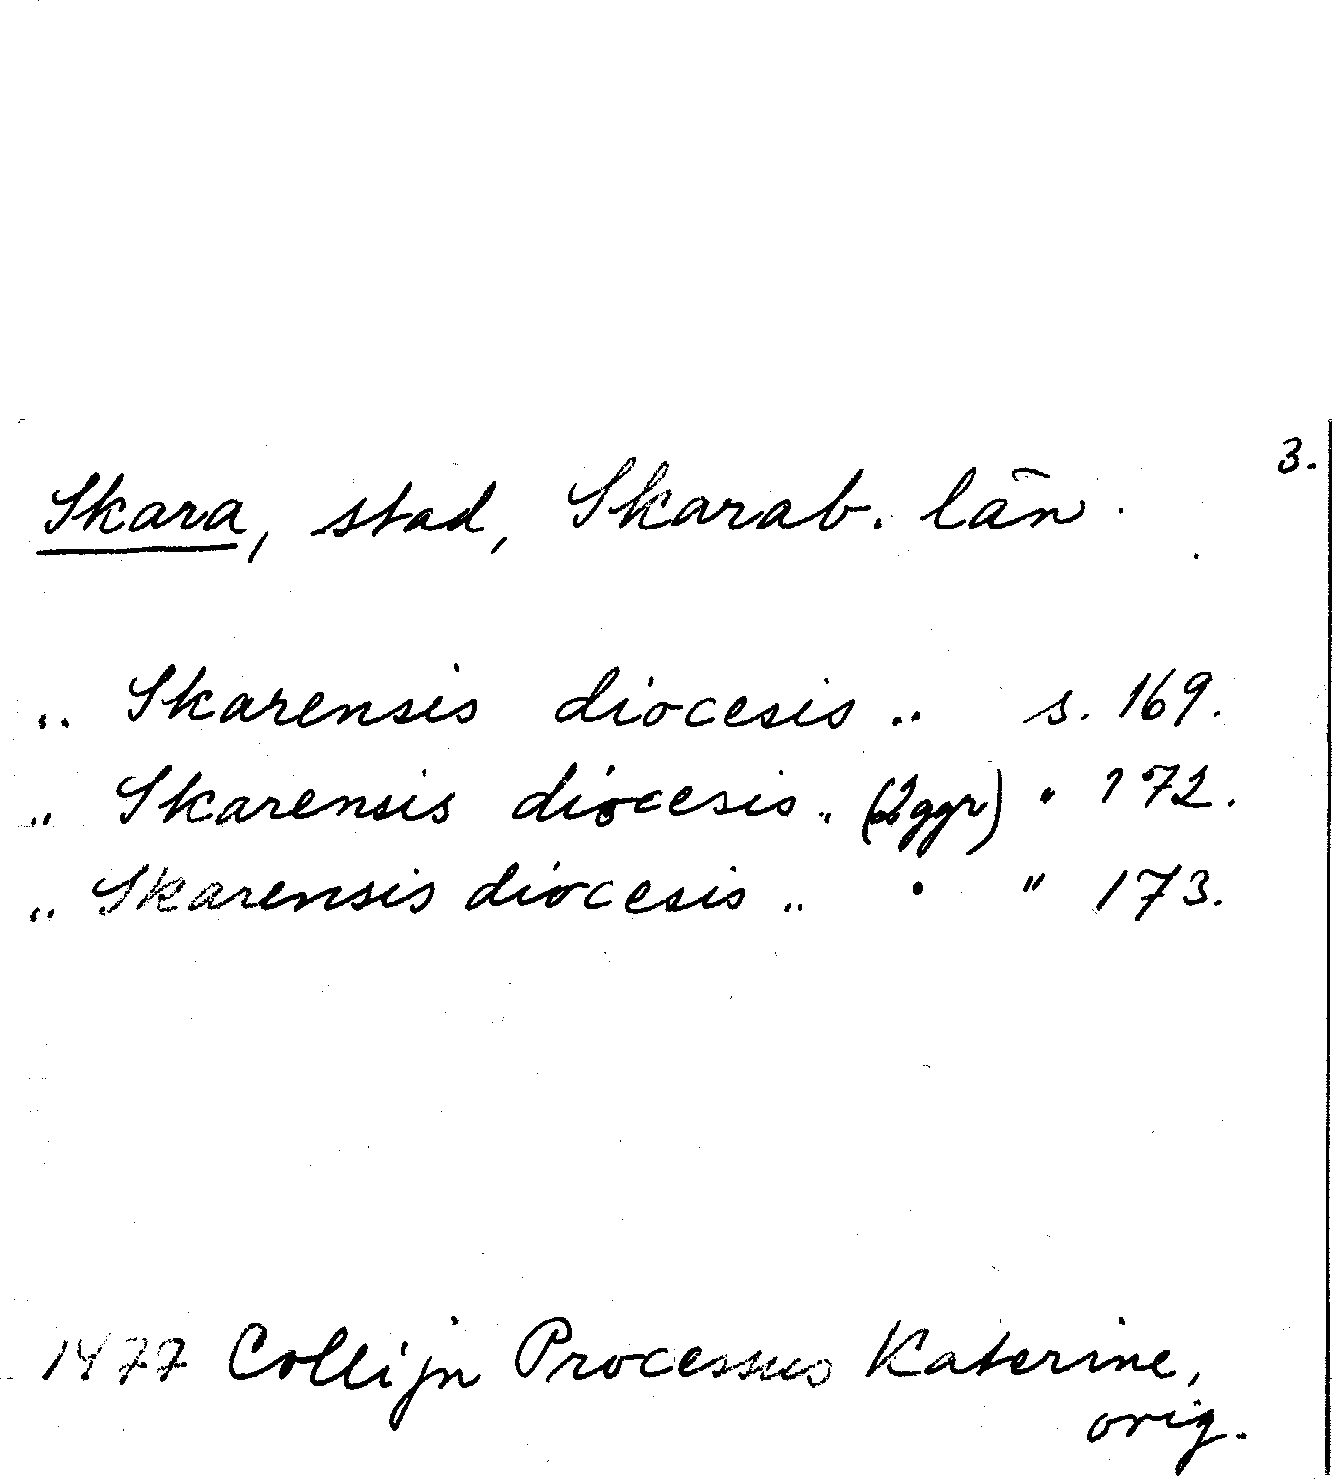 3.
Skara, stad, Skarab. län
.. Skarensis diocesis .. s. 169.
.. Skarensis diocesis .. (2ggr) " 172.
.. Skarensis diocesis .. " 173.
1477 Collijn Processus Katerine,
orig.